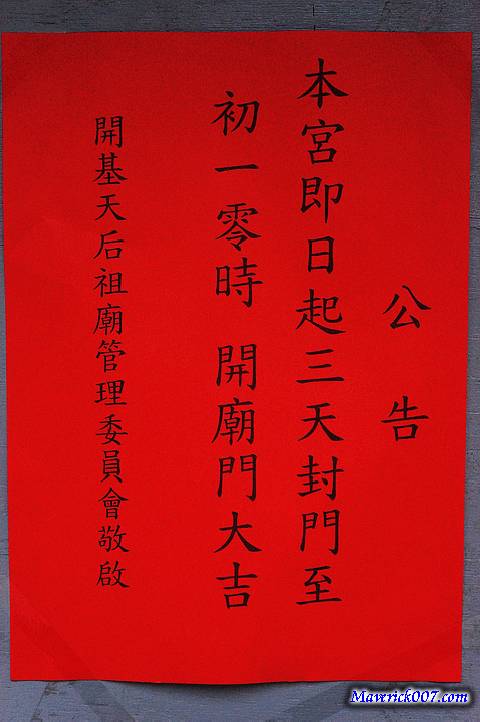 公告
本宮即日起三天封門至
初一零時 開廟門大吉
開基天后祖廟管理委員會敬啟
Maverick007.com